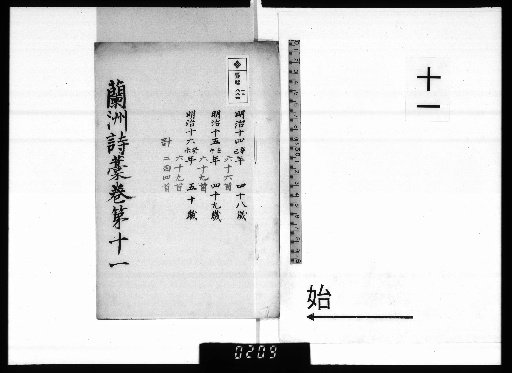 十一
始
明治十四辛巳年 四十八歳
六十六首
明治十五壬午年 四十九歳
六十九首
明治十六癸未年 五十歳
六十九首
計 二百四首
蘭洲詩藁卷第十一
0209